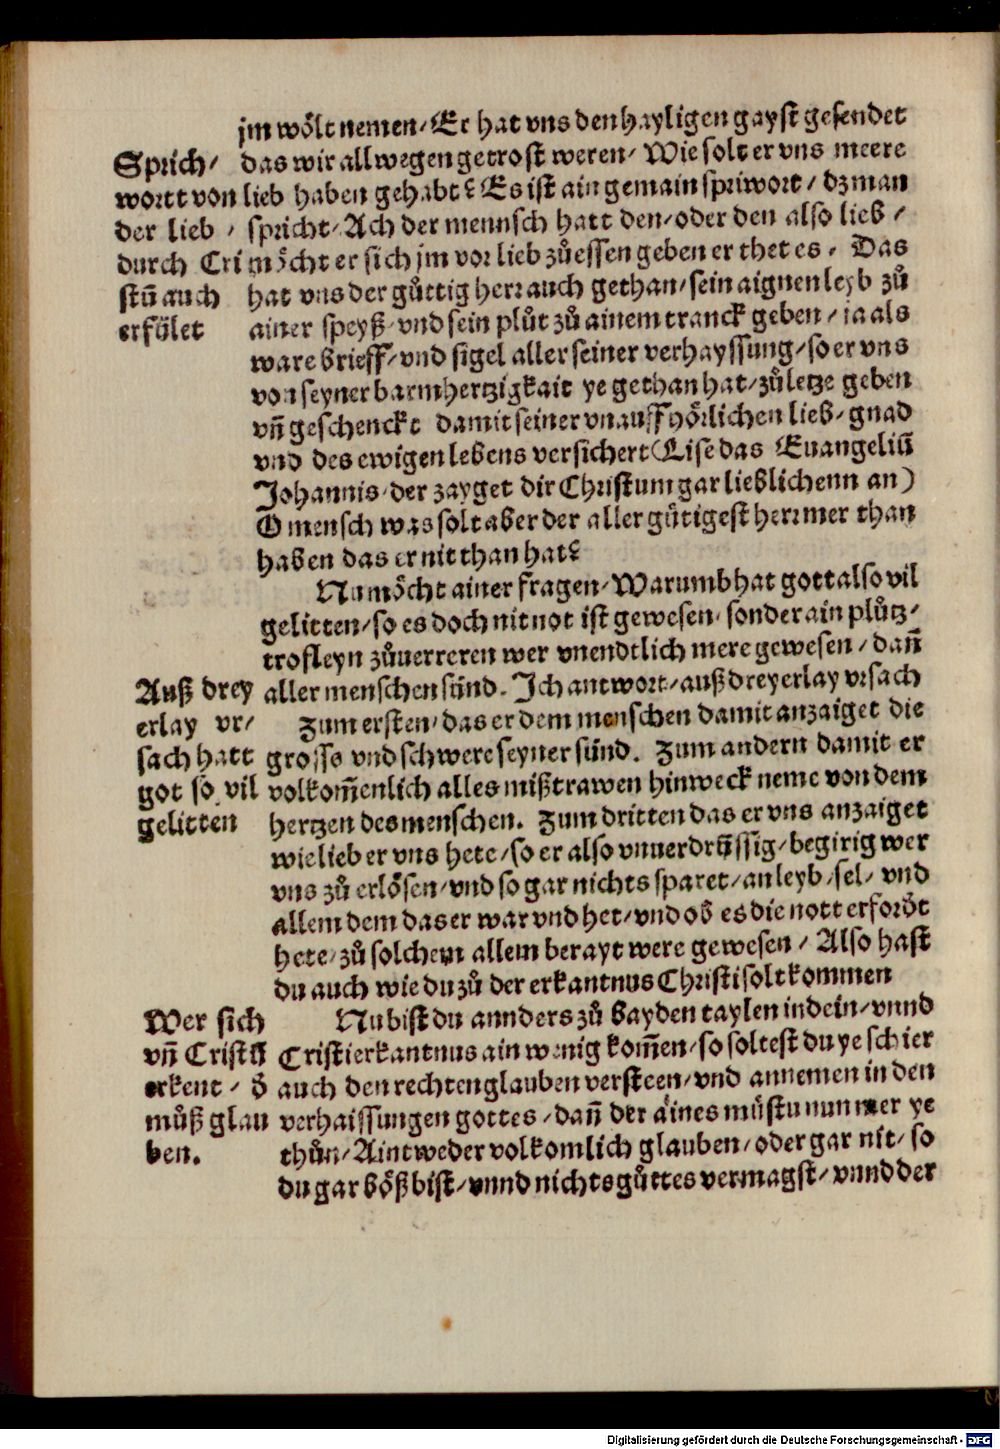 jm wölt nemen / Er hat vns den hayligen gayst gesendet
das wir allwegen getrost weren / Wie solt er vns meere
lieb haben gehabt? Es ist ain gemain spriwort / dz man
spricht / Ach der mennsch hatt den / oder den also lieb /
möcht er sich jm vor lieb zůessen geben er thet es / Das
hat vns der gůttig herr auch gethan / sein aignen leyb zů
ainer speyß / vnd sein plůt zů ainem tranck geben / ja als
ware brieff / vnd sigel aller seiner verhayssung / so er vns
von seyner barmhertzigkait ye gethan hat / zů letze geben
vñ geschenckt damit seiner vnauffhörlichen lieb / gnad
vnd des ewigen lebens versichert (Lise das Euangeliū
Johannis / der zayget dir Christum gar lieblichenn an)
O mensch was solt aber der aller gůtigest herr mer than
haben das er nit than hat?
Sprich /
wortt von
der lieb /
durch Cri
stū auch
erfölet
Nu möcht ainer fragen / Warumb hat gott also vil
gelitten / so es doch nit not ist gewesen / sonder ain plůtz /
trofleyn zůuerreren wer vnendtlich mere gewesen / dañ
aller menschen sünd. Ich antwort / auß dreyerlay vrsach
Zum ersten / das er dem menschen damit anzaiget die
grosse vnd schwere seyner sünd. Zum andern damit er
volkom̃enlich alles mißtrawen hinweck neme von dem
hertzen des menschen. Zum dritten das er vns anzaiget
wie lieb er vns hete / so er also vnuerdrüssig / begirig wer
vns zů erlösen / vnd so gar nichts sparet / an leyb / sel / vnd
allem dem das er war vnd het / vnd ob es die nott erfordt
hete / zů solchem allem berayt were gewesen / Also hast
du auch wie du zů der erkantnus Christi solt kommen
Auß drey
erlay vr /
sach hatt
got so vil
gelitten
Nu bist du annders zů bayden taylen in dein / vnnd
Cristi erkantnus ain wenig kom̃en / so soltest du ye schier
auch den rechten glauben versteen / vnd annemen in den
verhaissungen gottes / dañ der aines müstu nun mer ye
thůn / Aintweder volkomlich glauben / oder gar nit / so
du gar böß bist / vnnd nichts gůttes vermagst / vnnd der
Wer sich
vñ Cristū
erkent / d̄
můß glau
ben.
Digitalisierung gefördert durch die Deutsche Forschungsgemeinschaft - DFG